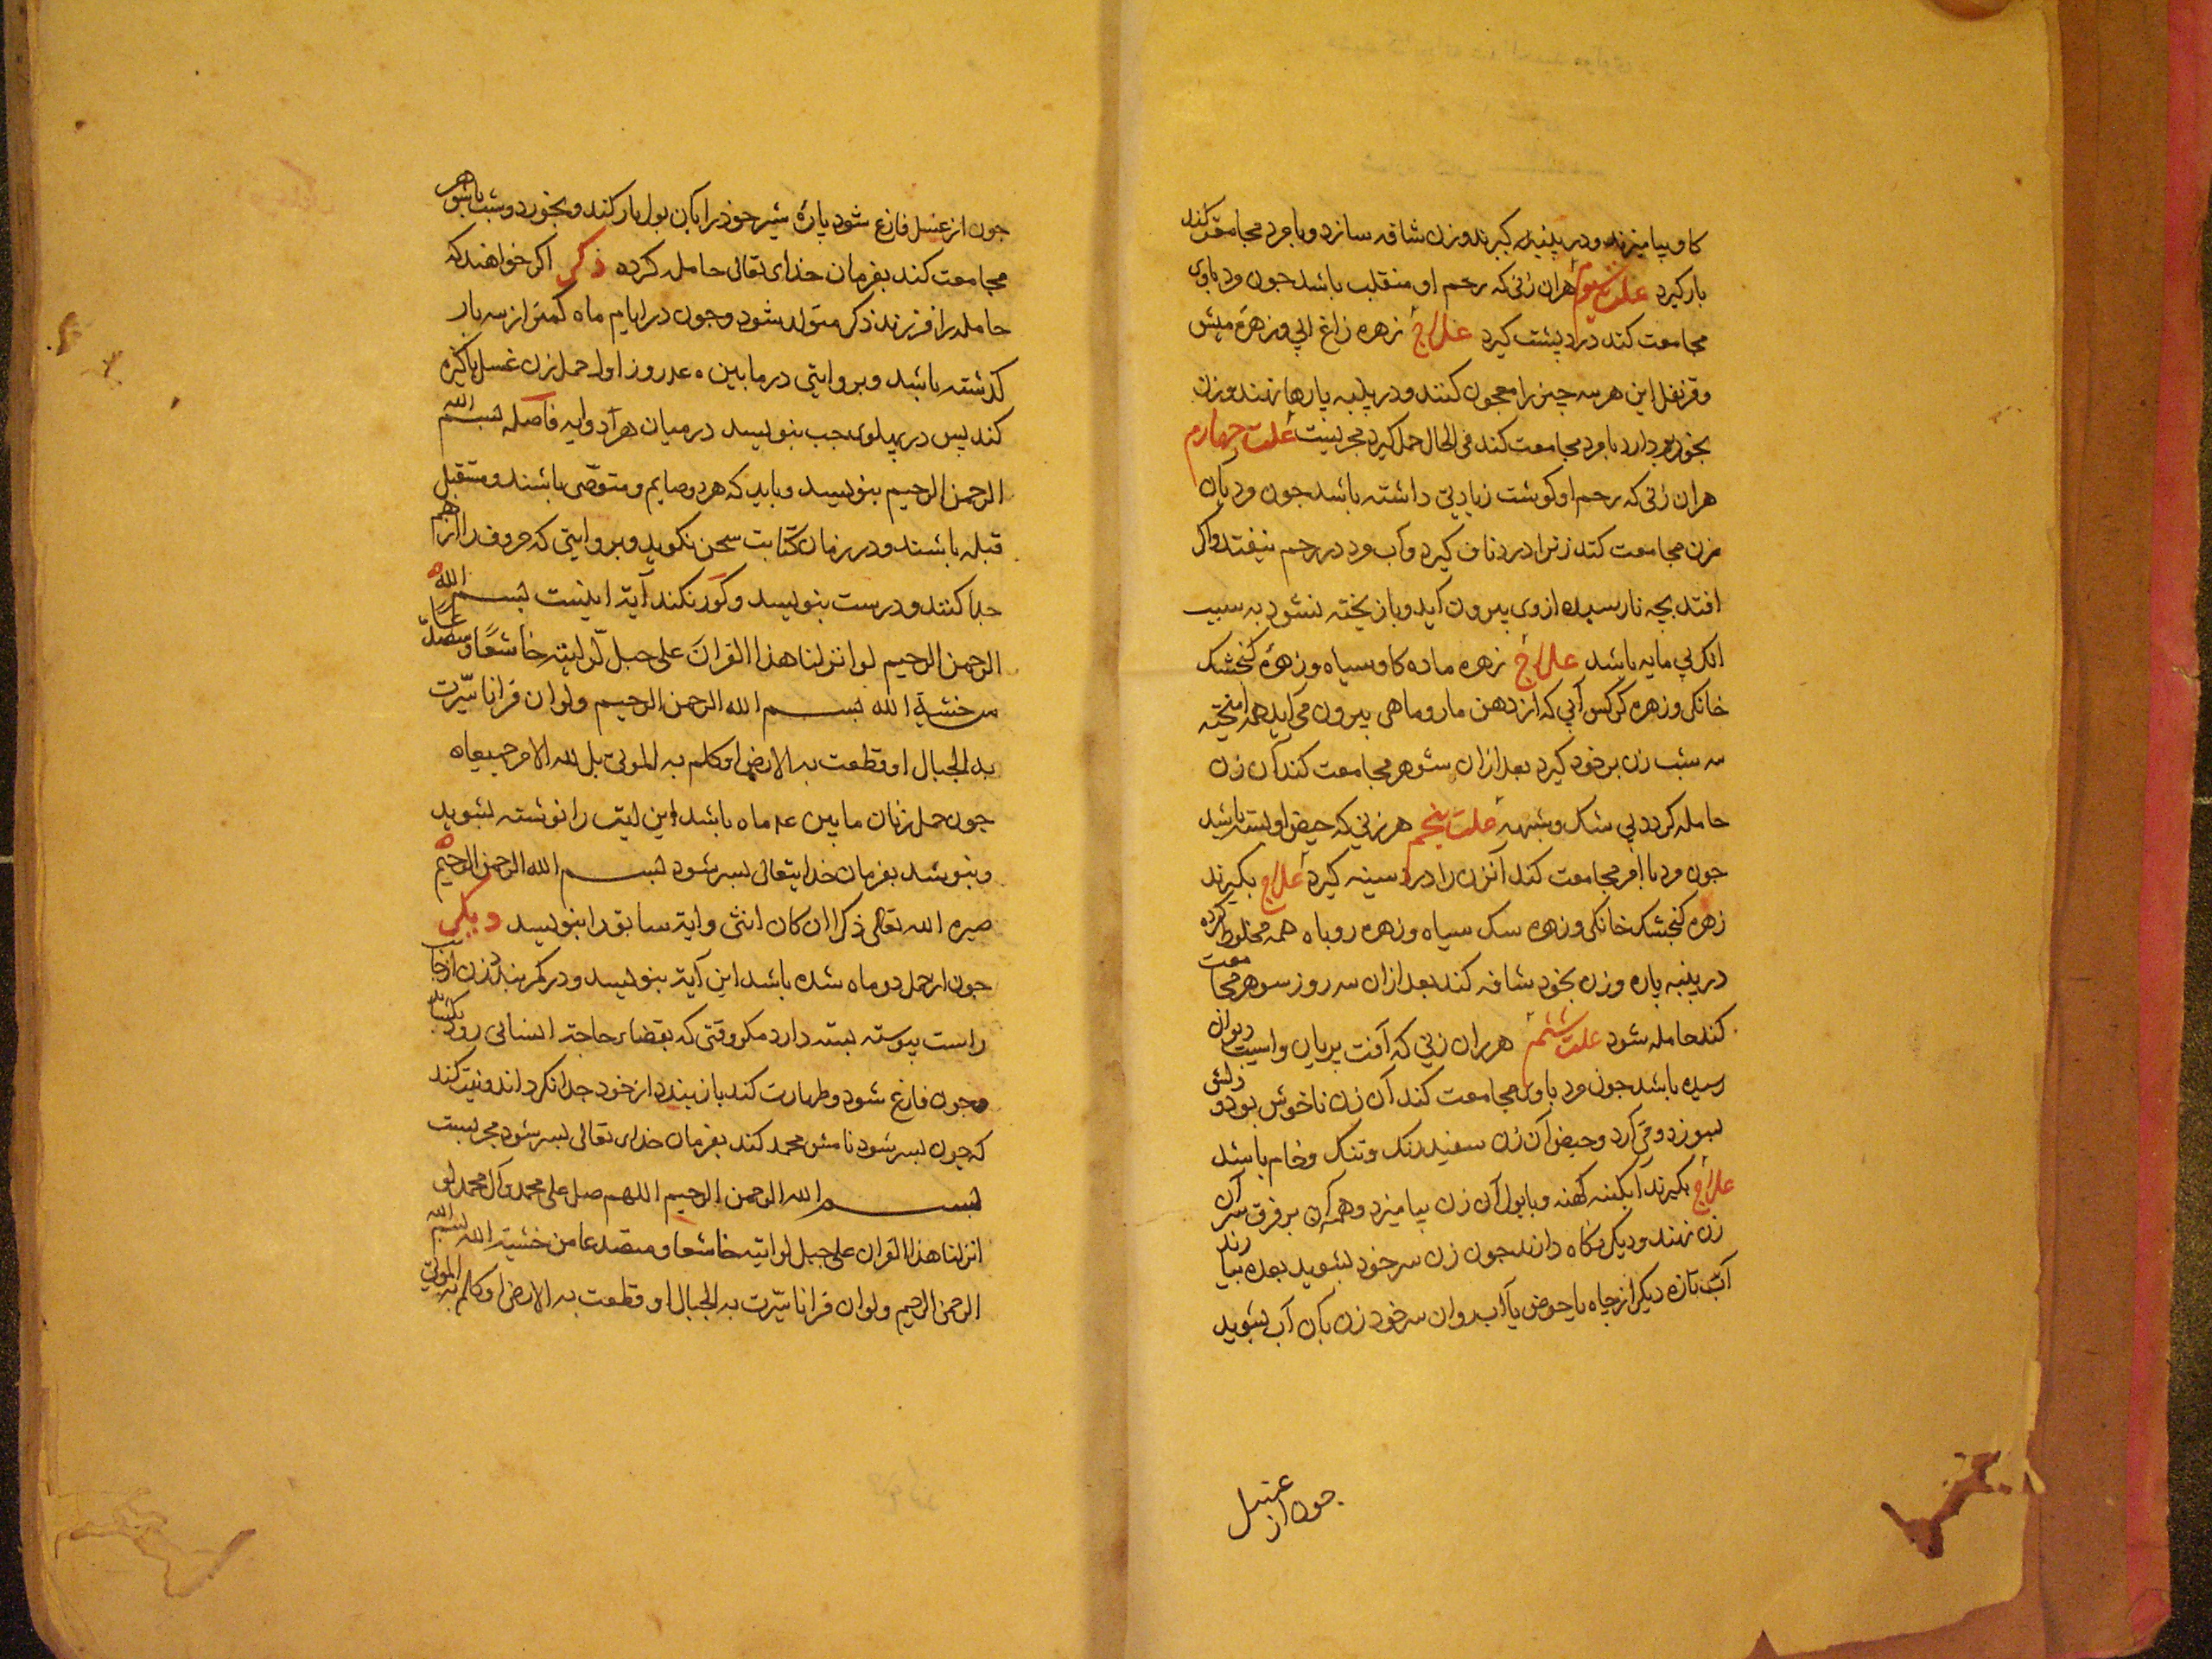 کاو بیامیزند و در پنبه کیرند و زن شافه سازد و با مرد مجامعت کند
بار کیرد علت سیوم هران زنی که رحم او منقلب باشد جون مرد باوی
مجامعت کند درد پشت کیرد علاج زهره زاغ ابی و زهره میش
و قرنفل این هر سه جیز را معجون کنند و در پنبه پارها نهند و زن
بخود بردارد با مرد مجامعت کند فی الحال حمل کیرد مجربست علت جهارم
هران زنی که رحم او کوشت زیادتی داشته باشد جون مرد بان
زن مجامعت کند زنرا درد ناف کیرد و آب مرد در رحم نیفتد و اکر
افتد بجه نارسیده از وی بیرون آید و باز پخته نشود به سبب
انک بی مایه باشد علاج زهره ماده کاو سیاه و زهره کنجشک
خانکی و زهره کرکس آبی که از دهن مار و ماهی بیرون می آید همه امیخته
سه شب زن بر خود کیرد بعد ازان شوهر مجامعت کند آن زن
حامله کردد بی شک و شبهه علت پنجم هر زنی که حیض او بسته باشد
جون مرد با او مجامعت کند آنزن را درد سینه کیرد علاج بکیرند
زهره کنجشک خانکی و زهره سک سیاه و زهره روباه همه مخلوط کرده
در پنبه پاره و زن بخود شافه کند بعد ازان سه روز شوهر مجامعت
کند حامله شود علت ششم هران زنی که آفت پریان و اسیب دیوان
رسیده باشد جون مرد با وی مجامعت کند آن زن ناخوش بود و دلش
بسوزد و قی آرد و حیض آن زن سفید رنک و تنک و خام باشد
علاج بکیرند آبکینه کهنه و با بول آن زن بیامیزد و همه آن بر فرق سر آن
زن نهند و دیک نکاه دارند جون زن سر خود بشوید بعده بیارند
آب تازه دیکر از جاه یا حوض یا آب روان سر خود زن بآن آب بشوید
جون از غسل
جون از غسل فارغ شود پاره شیر خود را بان بول یار کند و بخورد و شب با شوهر
مجامعت کند بفرمان خدای تعالی حامله کرده ذکر اکر خواهند که
حامله را فرزند ذکر متولد شود و جون در ایام ماه کمتر از سه بار
کذشته باشد و بروایتی در مابین ٤ روز اول حمل زن غسل پاکیزه
کند پس در پهلوی جب بنویسد در میان هر دو ایه فاصله بسم الله
الرحمن الرحیم بنویسد و باید که هر دو صایم و متوضی باشند و مستقبل
قبله باشند و در زمان کتابت سخن نکوید و بروایتی که حروف را از هم
جدا کنند و درست بنویسد و کور نکند آیة اینست بسم الله
الرحمن الرحیم لو انزلنا هذا القران علی جبل لرایته خاشعا متصدعا
من خشیة الله بسم الله الرحمن الرحیم ولو ان قرانا سیّرت
به الجبال او قطعت به الارض او کلم به الموتی بل لله الامر جمیعا
جون حمل زنان مابین ٤ ماه باشد این ایت را نوشته بشوید
و بنوشد بفرمان خدایتعالی پسر شود بسم الله الرحمن الرحیم
صیره الله تعالی ذکرا ان کان انثی و ایة سابق را بنویسد دیکر
جون از حمل دو ماه شده باشد این آیة بنویسد و در کمر بندد زن از جانب
راست پیوسته بسته دارد مکر وقتی که بقضاء حاجة انسانی رود بکشاید
وجون فارغ شود و طهارت کند باز بندد از خود جدا نکرداند و نیت کند
که جون پسر شود نامش محمد کند بفرمان خدای تعالی پسر شود مجربست
بسم الله الرحمن الرحیم اللهم صل علی محمد و آل محمد لو
انزلنا هذا القران علی جبل لرایته خاشعا و متصدعا من خشیة الله بسم الله
الرحمن الرحیم ولو ان قرانا سیّرت به الجبال او قطعت به الارض او کلم به الموتی